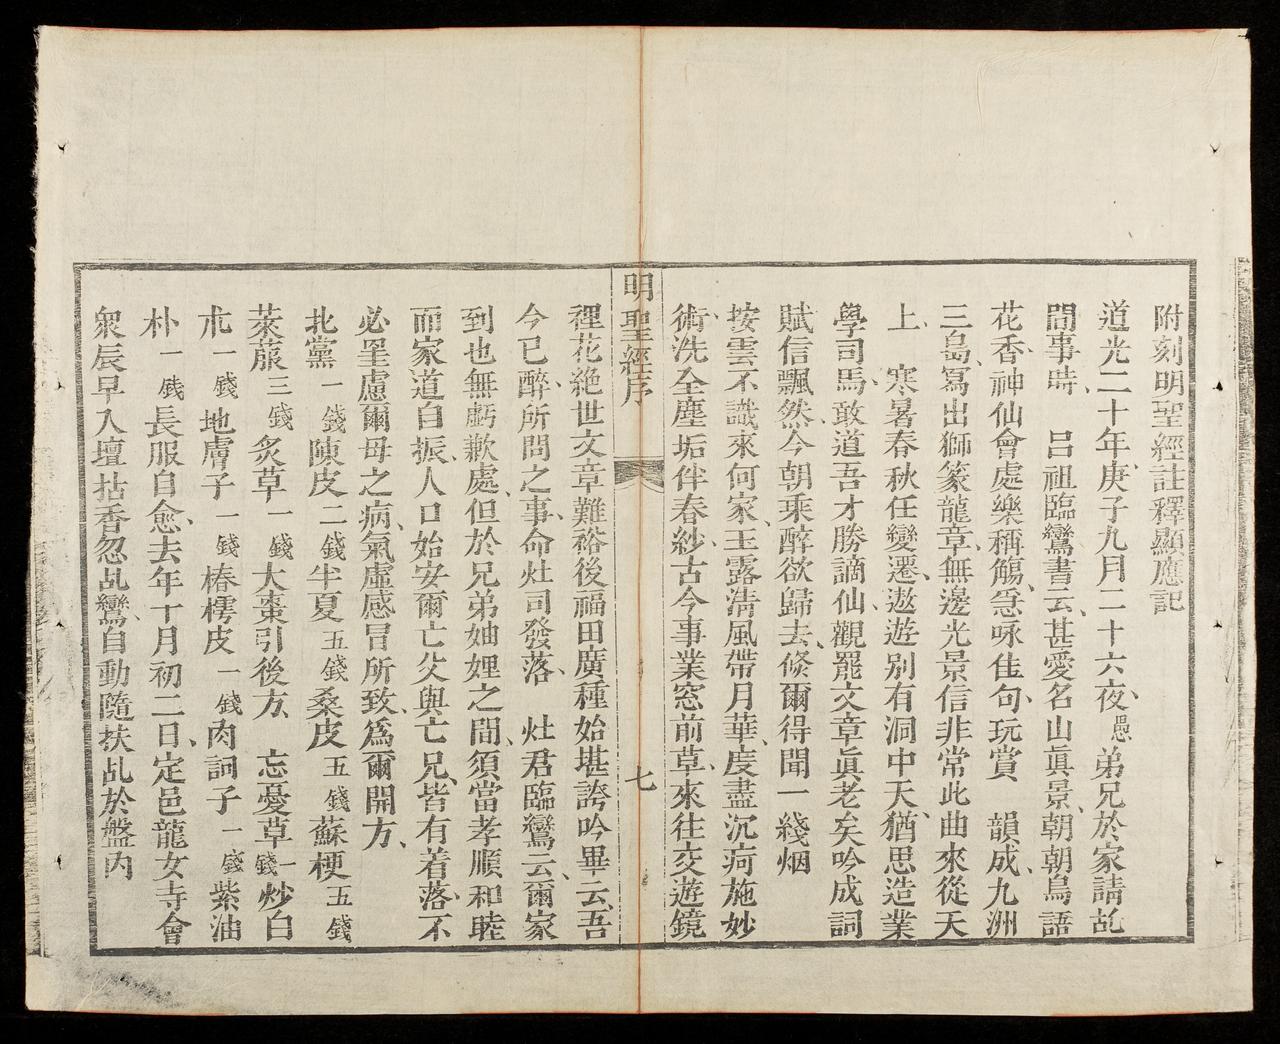 附刻明聖經註釋顯應記
道光二十年、庚子九月二十六夜、愚弟兄於家請乩
問事時、 呂祖臨鸞書云、甚愛名山眞景、朝朝鳥語
花香、神仙會處樂稱觴、忽咏佳句、玩賞 韻成、九洲
三島、寫出獅篆龍章、無邊光景信非常此曲來從天
上、 寒暑春秋任變遷、遨遊別有洞中天、猶思造業
學司馬、敢道吾才勝謫仙、觀罷文章眞老矣吟成詞
賦信飄然、今朝乘醉欲歸去、倏爾得聞一綫烟
按雲不識來何家、玉露清風帶月華、度盡沉疴施妙
術、洗全塵垢伴春紗、古今事業窓前草、來往交遊鏡
明聖經序
七
裡花絶世文章難裕後福田廣種始堪誇吟畢云、吾
今已醉、所問之事、命灶司發落、 灶君臨鸞云、爾家
到也無虧歉處、但於兄弟妯娌之間、須當孝順和睦
而家道自振、人口始安爾亡父與亡兄、皆有着落、不
必罣慮爾母之病、氣虛感冒所致、爲爾開方、
北黨一錢陳皮二錢半夏五錢桑皮五錢蘇梗五錢
萊菔三錢炙草一錢大棗引後方、 忘憂草一錢炒白
朮一錢地膚子一錢椿樗皮一錢肉訶子一錢紫油
朴一錢長服自愈、去年十月初二日、定邑龍女寺會
衆辰早入壇拈香忽乩鸞自動隨扶乩於盤內